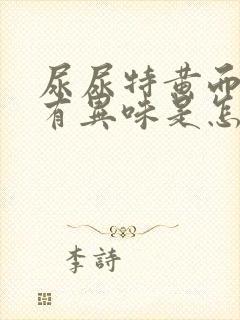 尿尿特黄而
有異味是怎
李詩